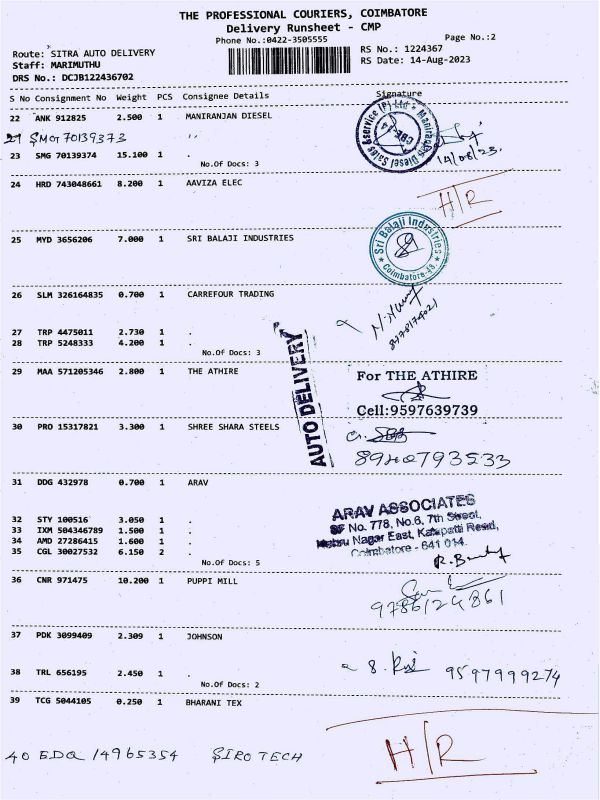 THE PROFESSIONAL COURIERS, COIMBATORE
Delivery Runsheet - CMP
Phone No.:0422-3505555
Page No.:2
Route: SITRA AUTO DELIVERY
RS No.: 1224367
Staff: MARIMUTHU
RS Date: 14-Aug-2023
DRS No.: DCJB122436702
S No Consignment No Weight PCS Consignee Details Signature
22 ANK 912825 2.500 1 MANIRANJAN DIESEL
SMG 70139373 ''
23 SMG 70139374 15.100 1 .
No.Of Docs: 3
14/08/23
24 HRD 743048661 8.200 1 AAVIZA ELEC
H/R
25 MYD 3656206 7.000 1 SRI BALAJI INDUSTRIES
Sri Balaji Industries
Coimbatore-48
26 SLM 326164835 0.700 1 CARREFOUR TRADING
27 TRP 4475011 2.730 1 .
28 TRP 5248333 4.200 1 .
No.Of Docs: 3
AUTO DELIVERY
29 MAA 571205346 2.800 1 THE ATHIRE
For THE ATHIRE
Cell:9597639739
30 PRO 15317821 3.300 1 SHREE SHARA STEELS
31 DDG 432978 0.700 1 ARAV
ARAV ASSOCIATES
SF No. 778, No.6, 7th Street,
Nehru Nagar East, Kalapatti Road,
Coimbatore - 641 014.
32 STY 100516 3.050 1 .
33 IXM 504346789 1.500 1 .
34 AMD 27286415 1.600 1 .
35 CGL 30027532 6.150 2 .
No.Of Docs: 5
36 CNR 971475 10.200 1 PUPPI MILL
9786124861
37 PDK 3099409 2.309 1 JOHNSON
9597999274
38 TRL 656195 2.450 1 .
No.Of Docs: 2
39 TCG 5044105 0.250 1 BHARANI TEX
H/R
40 EDQ 14965354 SIRO TECH